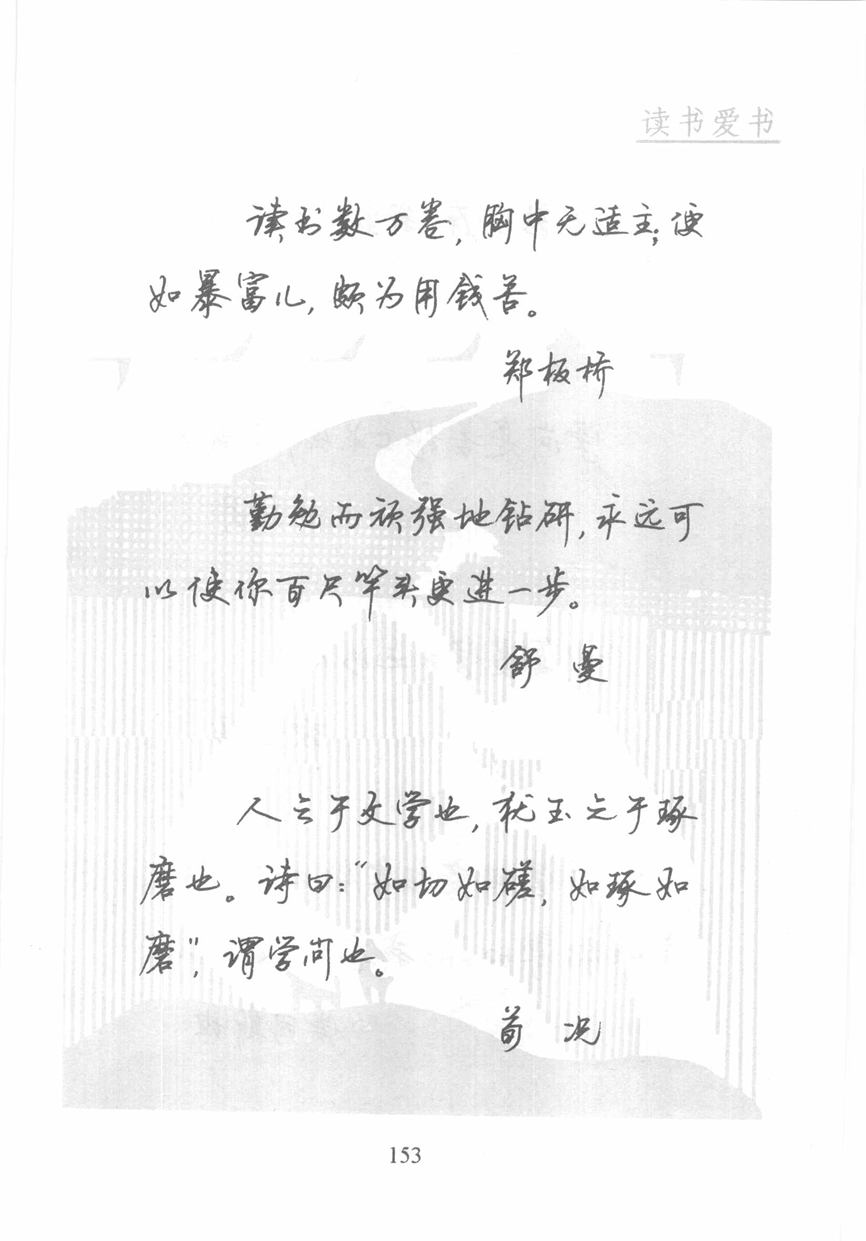 读书爱书
读书数万卷，胸中无适主；便
如暴富儿，颇为用钱苦。
郑板桥
勤勉而顽强地钻研，永远可
以使你百尺竿头更进一步。
舒曼
人之于文学也，犹玉之于琢
磨也。诗曰：“如切如磋，如琢如
磨”，谓学问也。
荀况
153